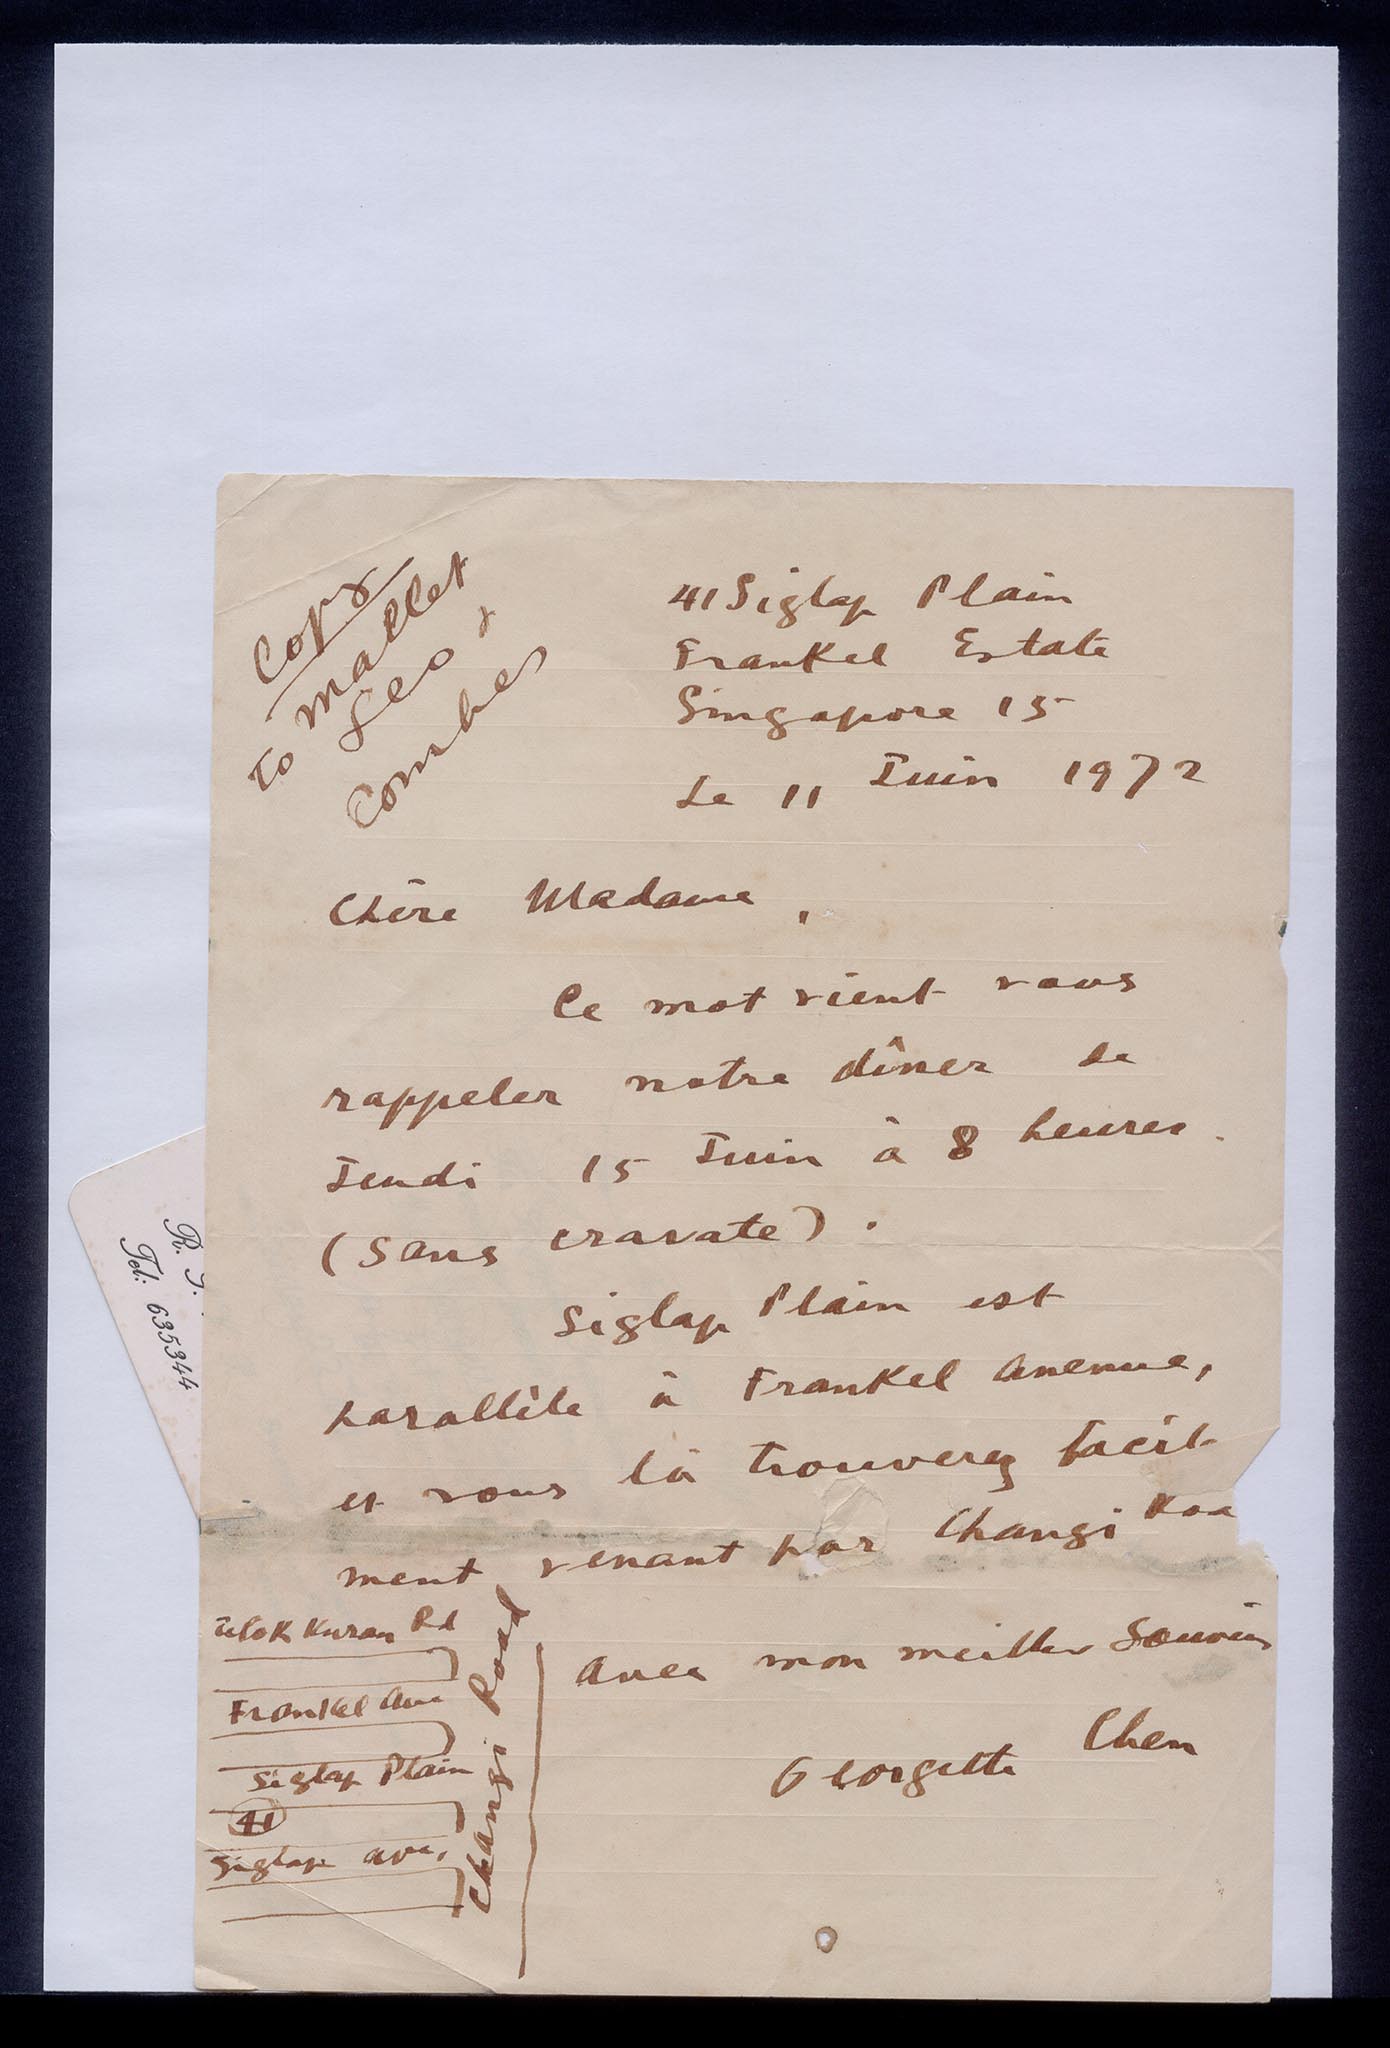 Copy
to Mallet
Seo &
Combes
41 Siglap Plain
Frankel Estate
Singapore 15
Le 11 Juin 1972
Chère Madame,
Ce mot vient vous
rappeler notre dîner le
Jeudi 15 Juin à 8 heures.
(sans cravate).
Siglap Plain est
parallèle à Frankel Avenue,
et vous la trouverez facile-
ment venant par Changi Roa
Avec mon meiller Souvein
Georgette Chen
Telok Kuran Rd
Frankel Ave
Siglap Plain
41
Siglap Ave,
Changi Road
R. J.
Tel: 635344